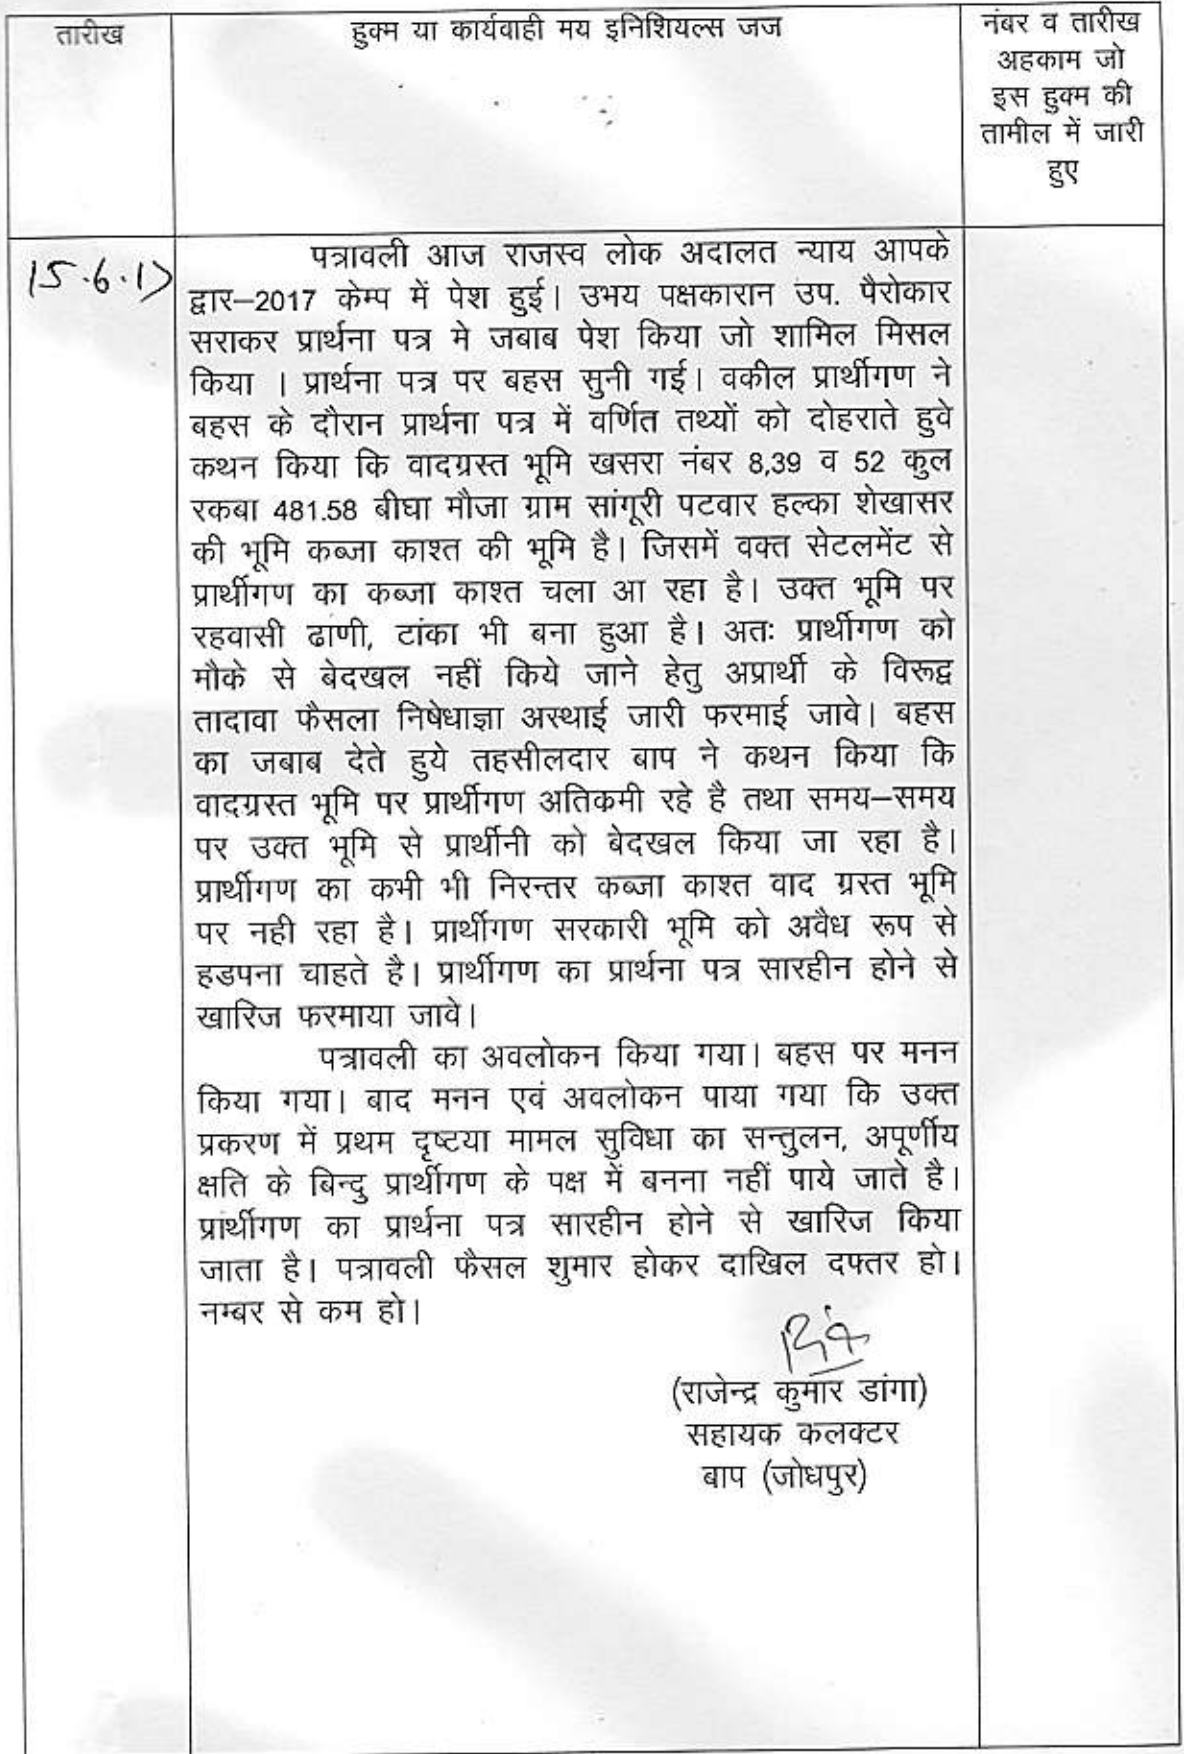 तारीख
हुक्म या कार्यवाही मय इनिशियल्स जज
नंबर व तारीख
अहकाम जो
इस हुक्म की
तामील में जारी
हुए
15.6.17
पत्रावली आज राजस्व लोक अदालत न्याय आपके
द्वार–2017 केम्प में पेश हुई। उभय पक्षकारान उप. पैरोकार
सराकर प्रार्थना पत्र मे जबाब पेश किया जो शामिल मिसल
किया । प्रार्थना पत्र पर बहस सुनी गई। वकील प्रार्थीगण ने
बहस के दौरान प्रार्थना पत्र में वर्णित तथ्यों को दोहराते हुवे
कथन किया कि वादग्रस्त भूमि खसरा नंबर 8,39 व 52 कुल
रकबा 481.58 बीघा मौजा ग्राम सांगूरी पटवार हल्का शेखासर
की भूमि कब्जा काश्त की भूमि है। जिसमें वक्त सेटलमेंट से
प्रार्थीगण का कब्जा काश्त चला आ रहा है। उक्त भूमि पर
रहवासी ढाणी, टांका भी बना हुआ है। अतः प्रार्थीगण को
मौके से बेदखल नहीं किये जाने हेतु अप्रार्थी के विरूद्व
तादावा फैसला निषेधाज्ञा अस्थाई जारी फरमाई जावे। बहस
का जबाब देते हुये तहसीलदार बाप ने कथन किया कि
वादग्रस्त भूमि पर प्रार्थीगण अतिकमी रहे है तथा समय–समय
पर उक्त भूमि से प्रार्थीनी को बेदखल किया जा रहा है।
प्रार्थीगण का कभी भी निरन्तर कब्जा काश्त वाद ग्रस्त भूमि
पर नही रहा है। प्रार्थीगण सरकारी भूमि को अवैध रूप से
हडपना चाहते है। प्रार्थीगण का प्रार्थना पत्र सारहीन होने से
खारिज फरमाया जावे।
पत्रावली का अवलोकन किया गया। बहस पर मनन
किया गया। बाद मनन एवं अवलोकन पाया गया कि उक्त
प्रकरण में प्रथम दृष्टया मामल सुविधा का सन्तुलन, अपूर्णीय
क्षति के बिन्दु प्रार्थीगण के पक्ष में बनना नहीं पाये जाते है।
प्रार्थीगण का प्रार्थना पत्र सारहीन होने से खारिज किया
जाता है। पत्रावली फैसल शुमार होकर दाखिल दफ्तर हो।
नम्बर से कम हो।
(राजेन्द्र कुमार डांगा)
सहायक कलक्टर
बाप (जोधपुर)